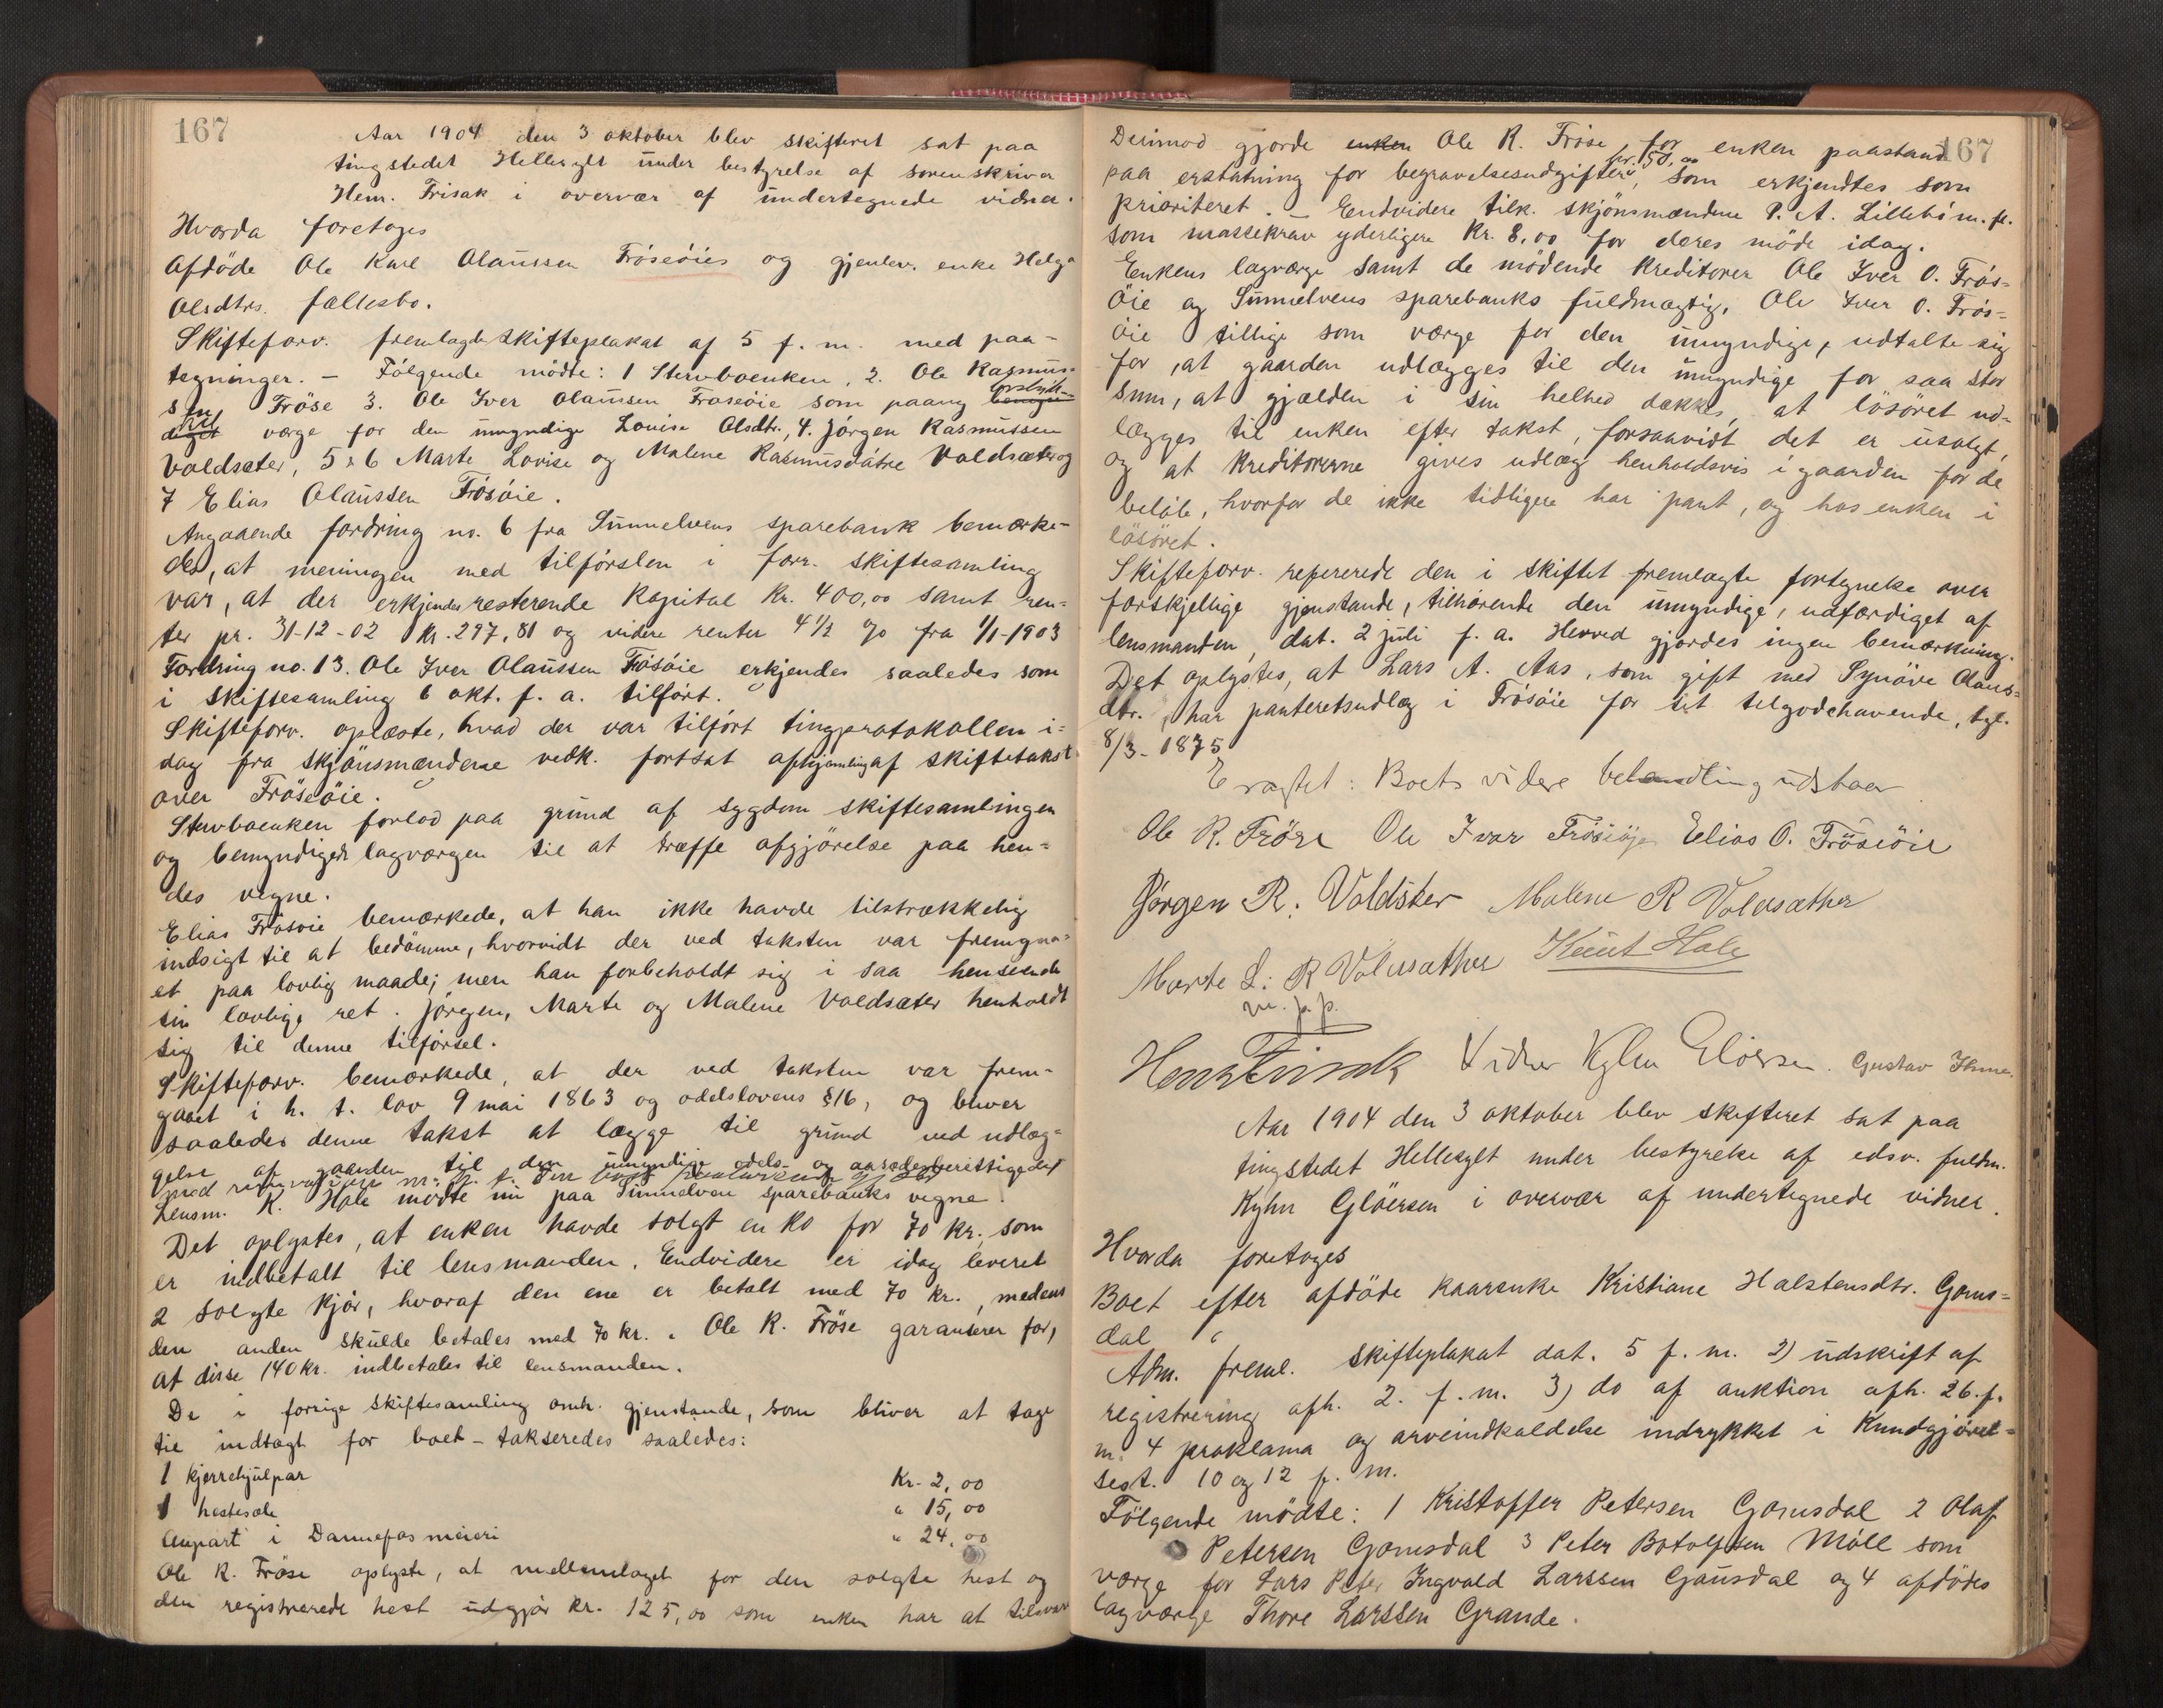 167
Aar 1904 den 3 oktober blev skifteret sat paa
tingstedet Hellesylt under bestyrelse af sorenskriver
Henr. Frisak i overvær af undertegnede vidner.
Hvorda foretoges
Afdöde Ole Karl Olaussen Fröseöies og gjenlev. enke Helga
Olsdtrs. fællesbo.
Skifteforv. fremlagde skifteplakat af 5 f. m. med paa-
tegninger. – Fölgende mödte: 1 Stervboenken, 2. Ole Rasmus-
sen Fröse 3. Ole Iver Olaussen Fröseöie som paany
værge for den umyndige Louise Olsdtr., 4. Jörgen Rasmussen
Voldsæter, 5 & 6 Marte Lovise og Malene Rasmusdötre Voldsæter og
7 Elias Olaussen Frösöie.
Angaaende fordring no. 6 fra Sunnelvens sparebank bemærke-
des, at meningen med tilförslen i forr. skiftesamling
var, at der erkjendes resterende Kapital Kr. 400,00 samt ren-
ter pr. 31-12-02 Kr. 297,81 og videre renter 4½ % fra 1/1-1903
Fordring no. 13. Ole Iver Olaussen Frösöie erkjendes saaledes som
i skiftesamling 6 okt. f. a. tilfört.
Skifteforv. oplæste, hvad der var tilfört tingprotokollen i-
dag fra skjönsmændene vedk. fortsat afhjemling af skiftetakst
over Fröseöie.
Stervboenken forlod paa grund af sygdom skiftesamlingen
og bemyndigede lagværgen til at træffe afgjörelse paa hen-
des vegne.
Elias Frösöie bemærkede, at han ikke havde tilstrækkelig
indsigt til at bedömme, hvorvidt der ved taksten var fremgaa-
et paa lovlig maade; men han forbeholdt sig i saa henseende
sin lovlige ret. Jörgen, Marte og Malene Voldsæter henholdt
sig til denne tilförsel.
Skifteforv. bemærkede, at der ved taksten var frem-
gaaet i h. t. lov 9 mai 1863 og odelslovens § 16, og bliver
saaledes denne takst at lægge til grund ved udlæg-
gelse af gaarden til den umyndige odels- og aasædesberettigede
med
Lensm. K. Hole mödte nu paa Sunnelven sparebanks vegne.
Det oplystes, at enken havde solgt en ko for 70 kr., som
er indbetalt til lensmanden. Endvidere er idag leveret
2 solgte kjör, hvoraf den ene er betalt med 70 kr., medens
den anden skulde betales med 70 kr. Ole R. Fröse garanterer for,
at disse 140 kr. indbetales til lensmanden.
De i forrige skiftesamling omh. gjenstande, som bliver at tage
til indtægt for boet – takseredes saaledes:
1 kjerrehjulpar Kr. 2,00
1 hestesele " 15,00
Anpart i Dannefos meieri " 24,00
Ole R. Fröse oplyste, at mellemlaget for den solgte hest og
den registrerede hest udgjör kr. 125,00 som enken har at tilsvare
167
Derimod gjorde enken Ole R. Fröse for enken paastand
paa erstatning for begravelsesudgifter, kr. 150,00 som erkjendtes som
prioriteret. – Endvidere tilk. skjönsmændene P. A. Lillebö m. fl.
som massekrav yderligere Kr. 8,00 for deres möde idag.
Enkens lagværge samt de mödende kreditorer Ole Iver O. Frös-
öie og Sunnelvens sparebanks fuldmægtig, Ole Iver O. Frös-
öie tillige som værge for den umyndige, udtalte sig
for, at gaarden udlægges til den umyndige for saa stor
sum, at gjælden i sin helhed dækkes, at lösöret ud-
lægges til enken efter takst, forsaavidt det er usolgt,
og at kreditorerne gives udlæg henholdsvis i gaarden for de
belöb, hvorfor de ikke tidligere har pant, og hos enken i
lösöret.
Skifteforv. refererede den i skiftet fremlagte fortegnelse over
forskjellige gjenstande, tilhörende den umyndige, udfærdiget af
lensmanden, dat. 2 juli f. a. Herved gjordes ingen bemærkning.
Det oplystes, at Lars A. Aas, som gift med Synöve Olaus-
dtr., har panteretsudlæg i Frösöie for sit tilgodehavende, tgl.
8/3-1875
Eragtet: Boets videre behandling udstaar
Ole R. Fröse Ole Ivar Frösöje Elias O. Fröseöie
Jørgen R. Voldsæter Malene R Voldsæther
Marte L. R Voldsæther Knut Hole
m. p. p.
Henr Frisak Vidner Kyhn Glöersen. Gustav
Aar 1904 den 3 oktober blev skifteret sat paa
tingstedet Hellesylt under bestyrelse af edsv. fuldm.
Kyhn Glöersen i overvær af undertegnede vidner.
Hvorda foretoges
Boet efter afdöde kaarenke Kristiane Halstensdtr. Goms-
dal
Adm. freml. skifteplakat dat. 5 f. m. 2) udskrift af
registrering afh. 2. f. m. 3) do af auktion afh. 26. f.
m. 4 proklama og arveindkaldelse indrykket i Kundgjörel-
sest. 10 og 12 f. m.
Fölgende mödte: 1 Kristoffer Petersen Gomsdal 2 Olaf
Petersen Gomsdal 3 Peter Botolfsen Möll som
værge for Lars Peter Ingvald Larssen Gausdal og 4 afdödes
lagværge Thore Larssen Grande.